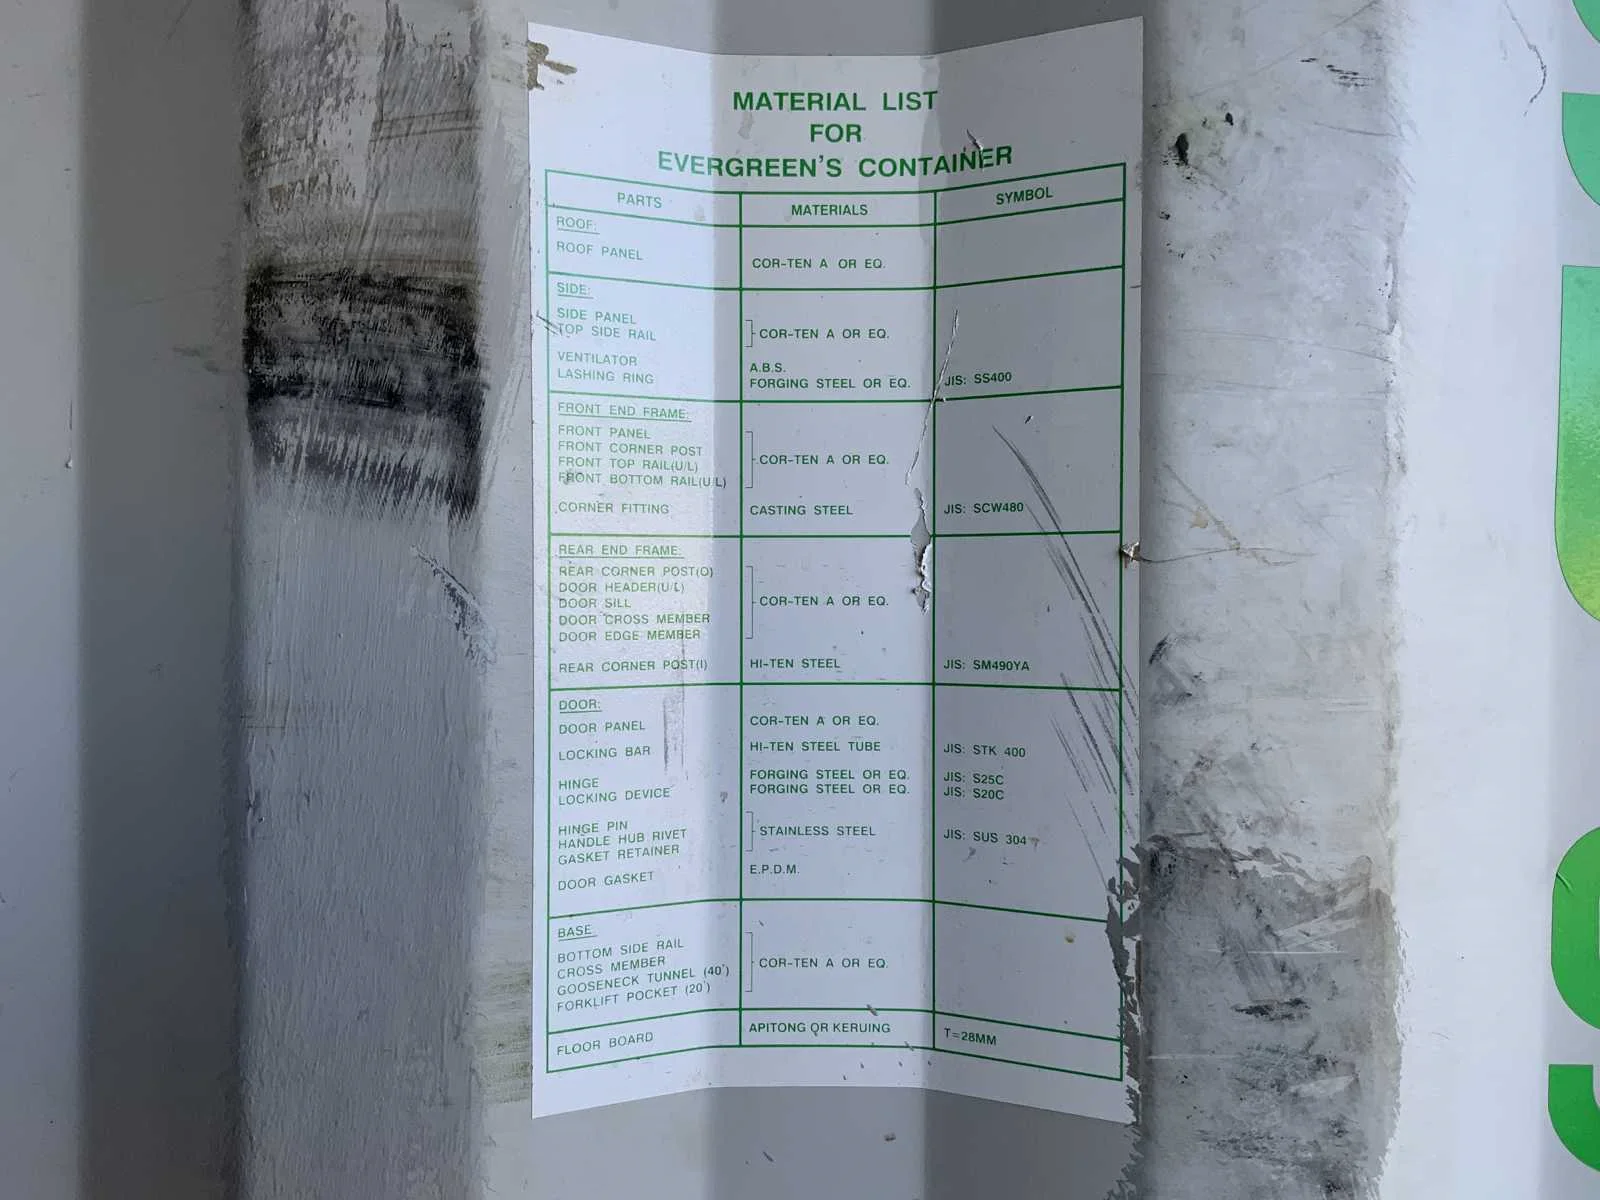 MATERIAL LIST
FOR
EVERGREEN'S CONTAINER
PARTS MATERIALS SYMBOL
ROOF:
ROOF PANEL COR-TEN A OR EQ.
SIDE:
SIDE PANEL
TOP SIDE RAIL COR-TEN A OR EQ.
VENTILATOR A.B.S.
LASHING RING FORGING STEEL OR EQ. JIS: SS400
FRONT END FRAME:
FRONT PANEL
FRONT CORNER POST COR-TEN A OR EQ.
FRONT TOP RAIL(U/L)
FRONT BOTTOM RAIL(U/L)
CORNER FITTING CASTING STEEL JIS: SCW480
REAR END FRAME:
REAR CORNER POST(O)
DOOR HEADER(U/L)
DOOR SILL COR-TEN A OR EQ.
DOOR CROSS MEMBER
DOOR EDGE MEMBER
REAR CORNER POST(I) HI-TEN STEEL JIS: SM490YA
DOOR:
DOOR PANEL COR-TEN A OR EQ.
LOCKING BAR HI-TEN STEEL TUBE JIS: STK 400
HINGE FORGING STEEL OR EQ. JIS: S25C
LOCKING DEVICE FORGING STEEL OR EQ. JIS: S20C
HINGE PIN
HANDLE HUB RIVET STAINLESS STEEL JIS: SUS 304
GASKET RETAINER
DOOR GASKET E.P.D.M.
BASE:
BOTTOM SIDE RAIL
CROSS MEMBER COR-TEN A OR EQ.
GOOSENECK TUNNEL (40')
FORKLIFT POCKET (20')
FLOOR BOARD APITONG OR KERUING T=28MM